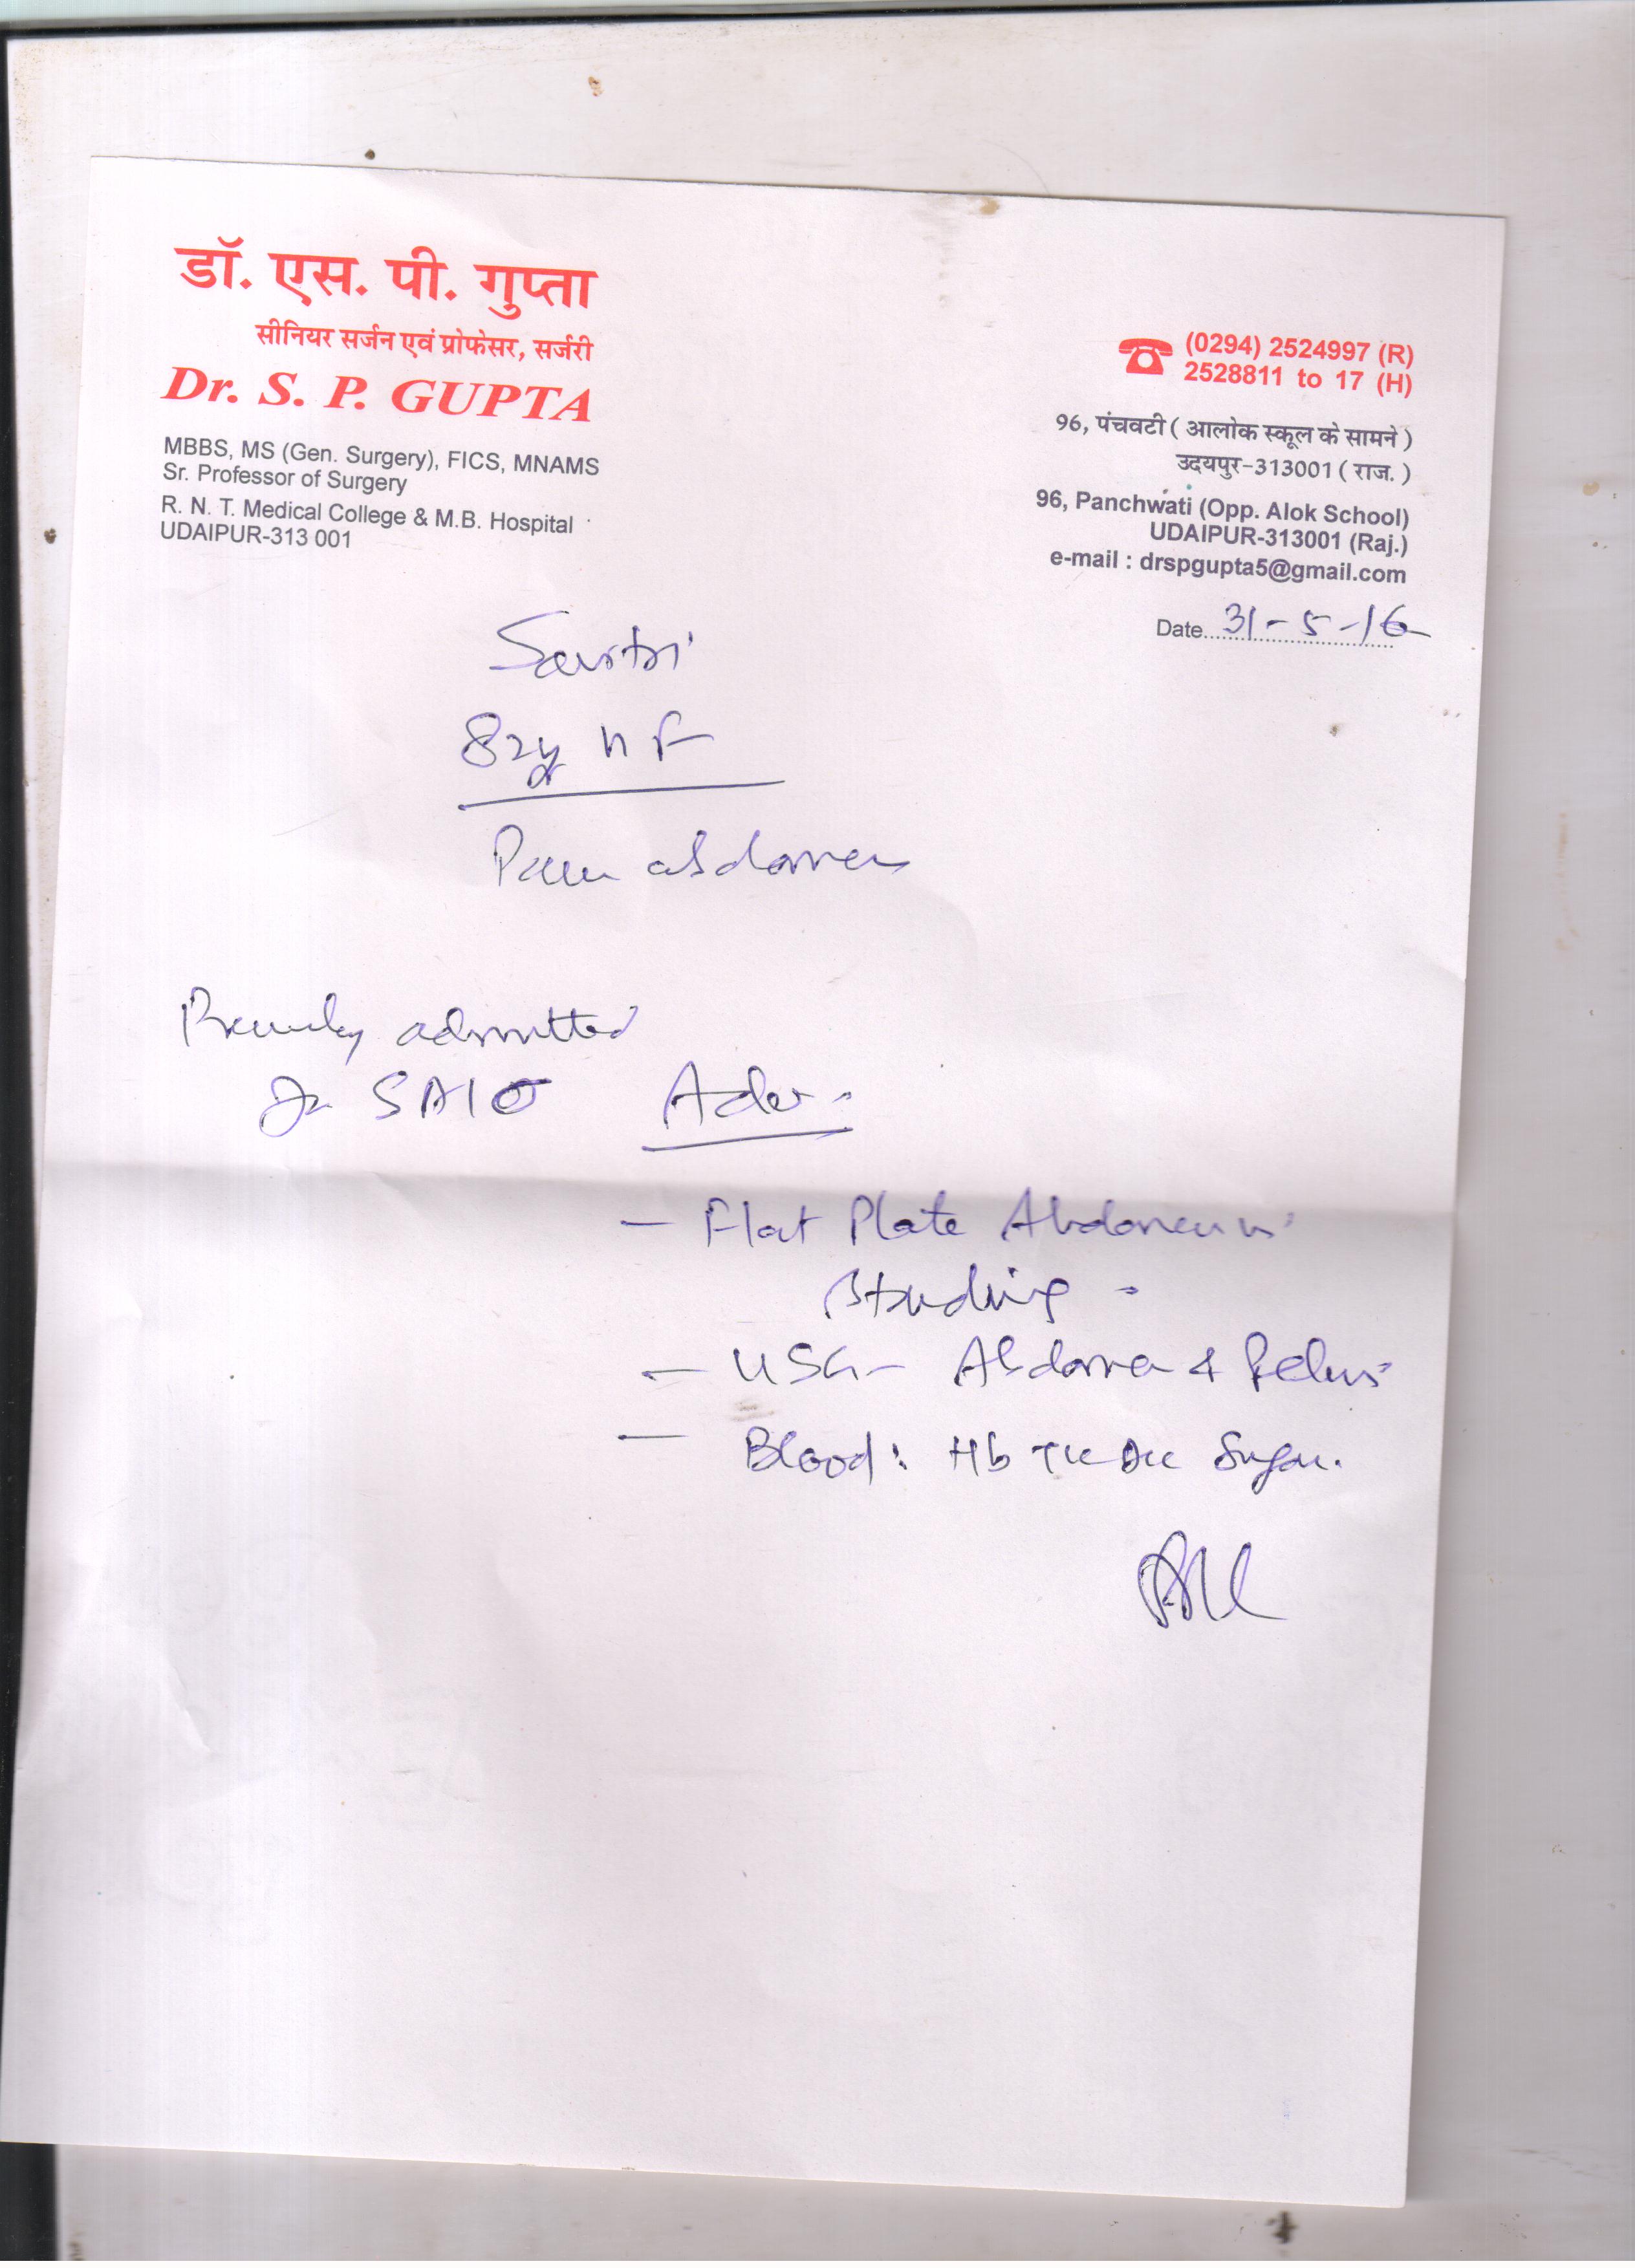 डॉ. एस. पी. गुप्ता
सीनियर सर्जन एवं प्रोफेसर, सर्जरी
Dr. S. P. GUPTA
MBBS, MS (Gen. Surgery), FICS, MNAMS
Sr. Professor of Surgery
R. N. T. Medical College & M.B. Hospital
UDAIPUR-313 001
(0294) 2524997 (R)
2528811 to 17 (H)
96, पंचवटी ( आलोक स्कूल के सामने )
उदयपुर-313001 ( राज. )
96, Panchwati (Opp. Alok School)
UDAIPUR-313001 (Raj.)
e-mail : drspgupta5@gmail.com
Date 31-5-16
Savitri
82y H F
Pain abdomen
admitted
Adv.
- Flat Plate Abdomen in
Standing -
- USG - Abdomen & Pelvis
- Blood : Hb TLC DLC Sugar.